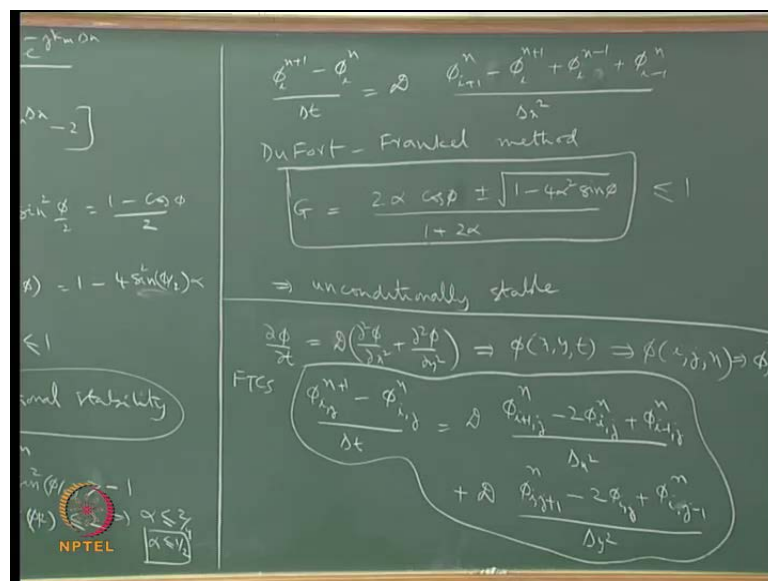 e^{-jk_m Δx}
Δx - 2]
sin² φ/2 = (1 - cos φ)/2
φ) = 1 - 4 sin²(φ/2) α
≤ 1
ional stability
n
sin²(φ/ - 1
(φ/2) ≤ 2 ⇒ α ≤ 2/
α ≤ 1/2
NPTEL
(φ_i^{n+1} - φ_i^n)/Δt = D (φ_{i+1}^n - φ_i^{n+1} + φ_i^{n-1} + φ_{i-1}^n)/Δx²
DuFort - Frankel method
G = (2α cosφ ± √(1 - 4α² sinφ))/(1 + 2α) ≤ 1
⇒ unconditionally stable
∂φ/∂t = D(∂²φ/∂x² + ∂²φ/∂y²) ⇒ φ(x, y, t) ⇒ φ(i, j, n) ⇒ φ
FTCS (φ_{i,j}^{n+1} - φ_{i,j}^n)/Δt = D (φ_{i+1,j}^n - 2φ_{i,j}^n + φ_{i-1,j}^n)/Δx²
+ D (φ_{i,j+1}^n - 2φ_{i,j} + φ_{i,j-1}^n)/Δy²